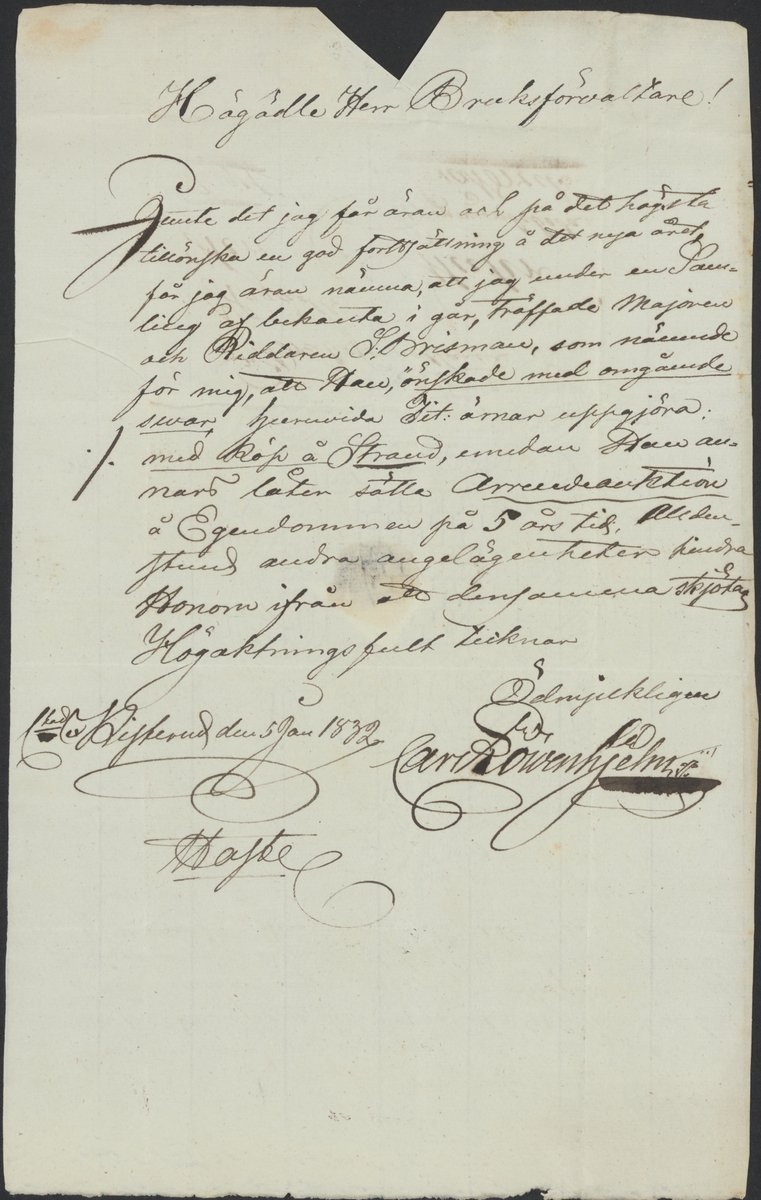 Högädle Herr Bruksförvaltare!
Jemte det jag får äran och på det högsta
tillönska en god fortsättning å det nya året,
får jag äran nämna, att jag under en Sam-
ling af bekanta i går, träffade Majoren
och Riddaren S: Brisman, som nämnde
för mig, att Han, "önskade med omgående
swar, huruvida Tit: ärnar uppgjöra:
./. med köp å Strand, emedan Han an-
nars låter sätta Arrendeauktion
å Egendommen på 5 års tid, Allden-
stund andra angelägenheter hindra
Honom ifrån att densamma skjöta
Högaktningsfult teknar
Ödmjukligen
Histerud den 5 Jan 1832
Carl Löwenhjelm
Haste